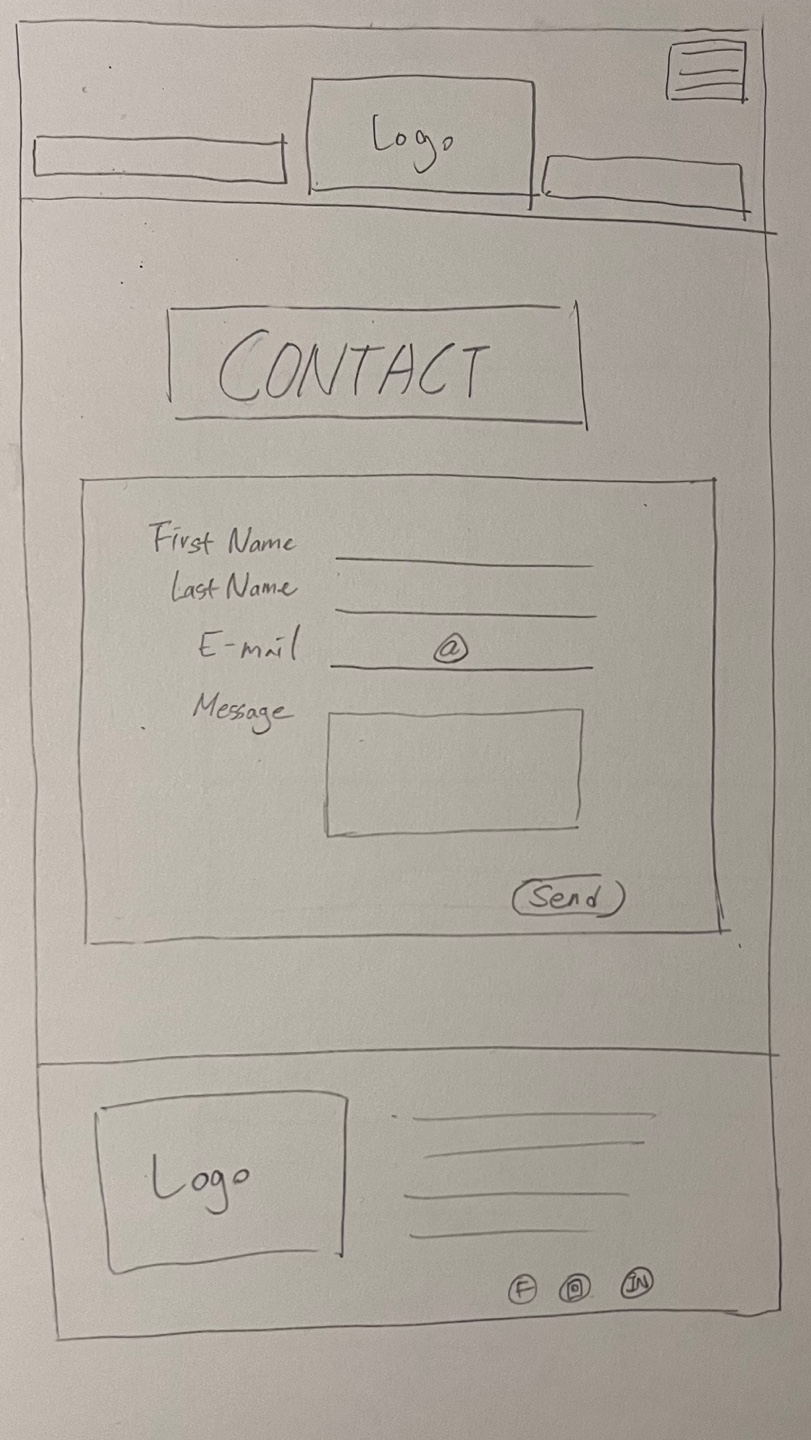 Logo
CONTACT
First Name
Last Name
E-mail @
Message
Send
Logo
F IN